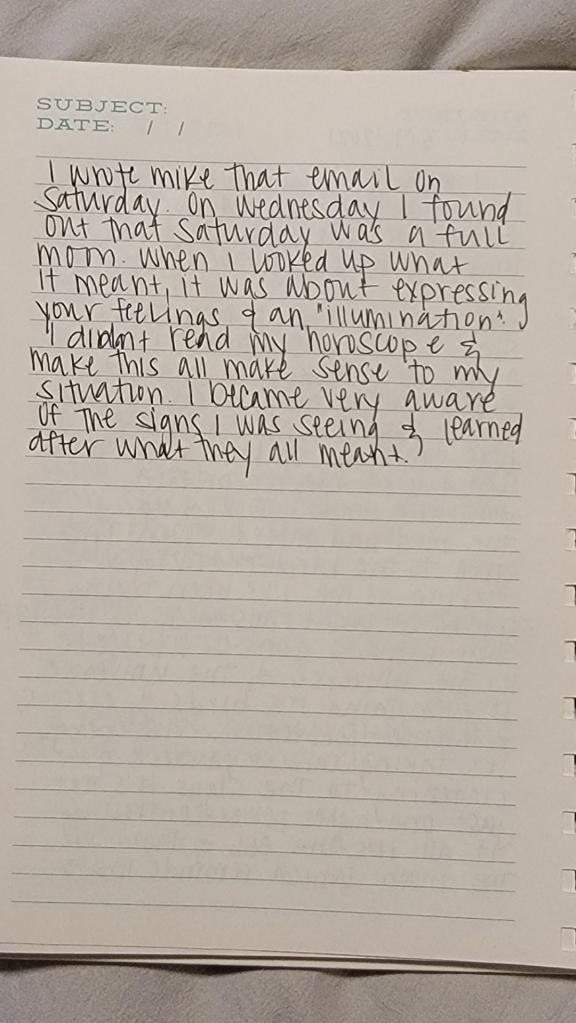 SUBJECT:
DATE: / /
I wrote mike that email on
Saturday. On Wednesday I found
out that Saturday was a full
moon. When I looked up what
it meant, it was about expressing
your feelings & an "illumination".
I didnt read my horoscope &
make this all make sense to my
situation. I became very aware
of the signs I was seeing & learned
after what they all meant.